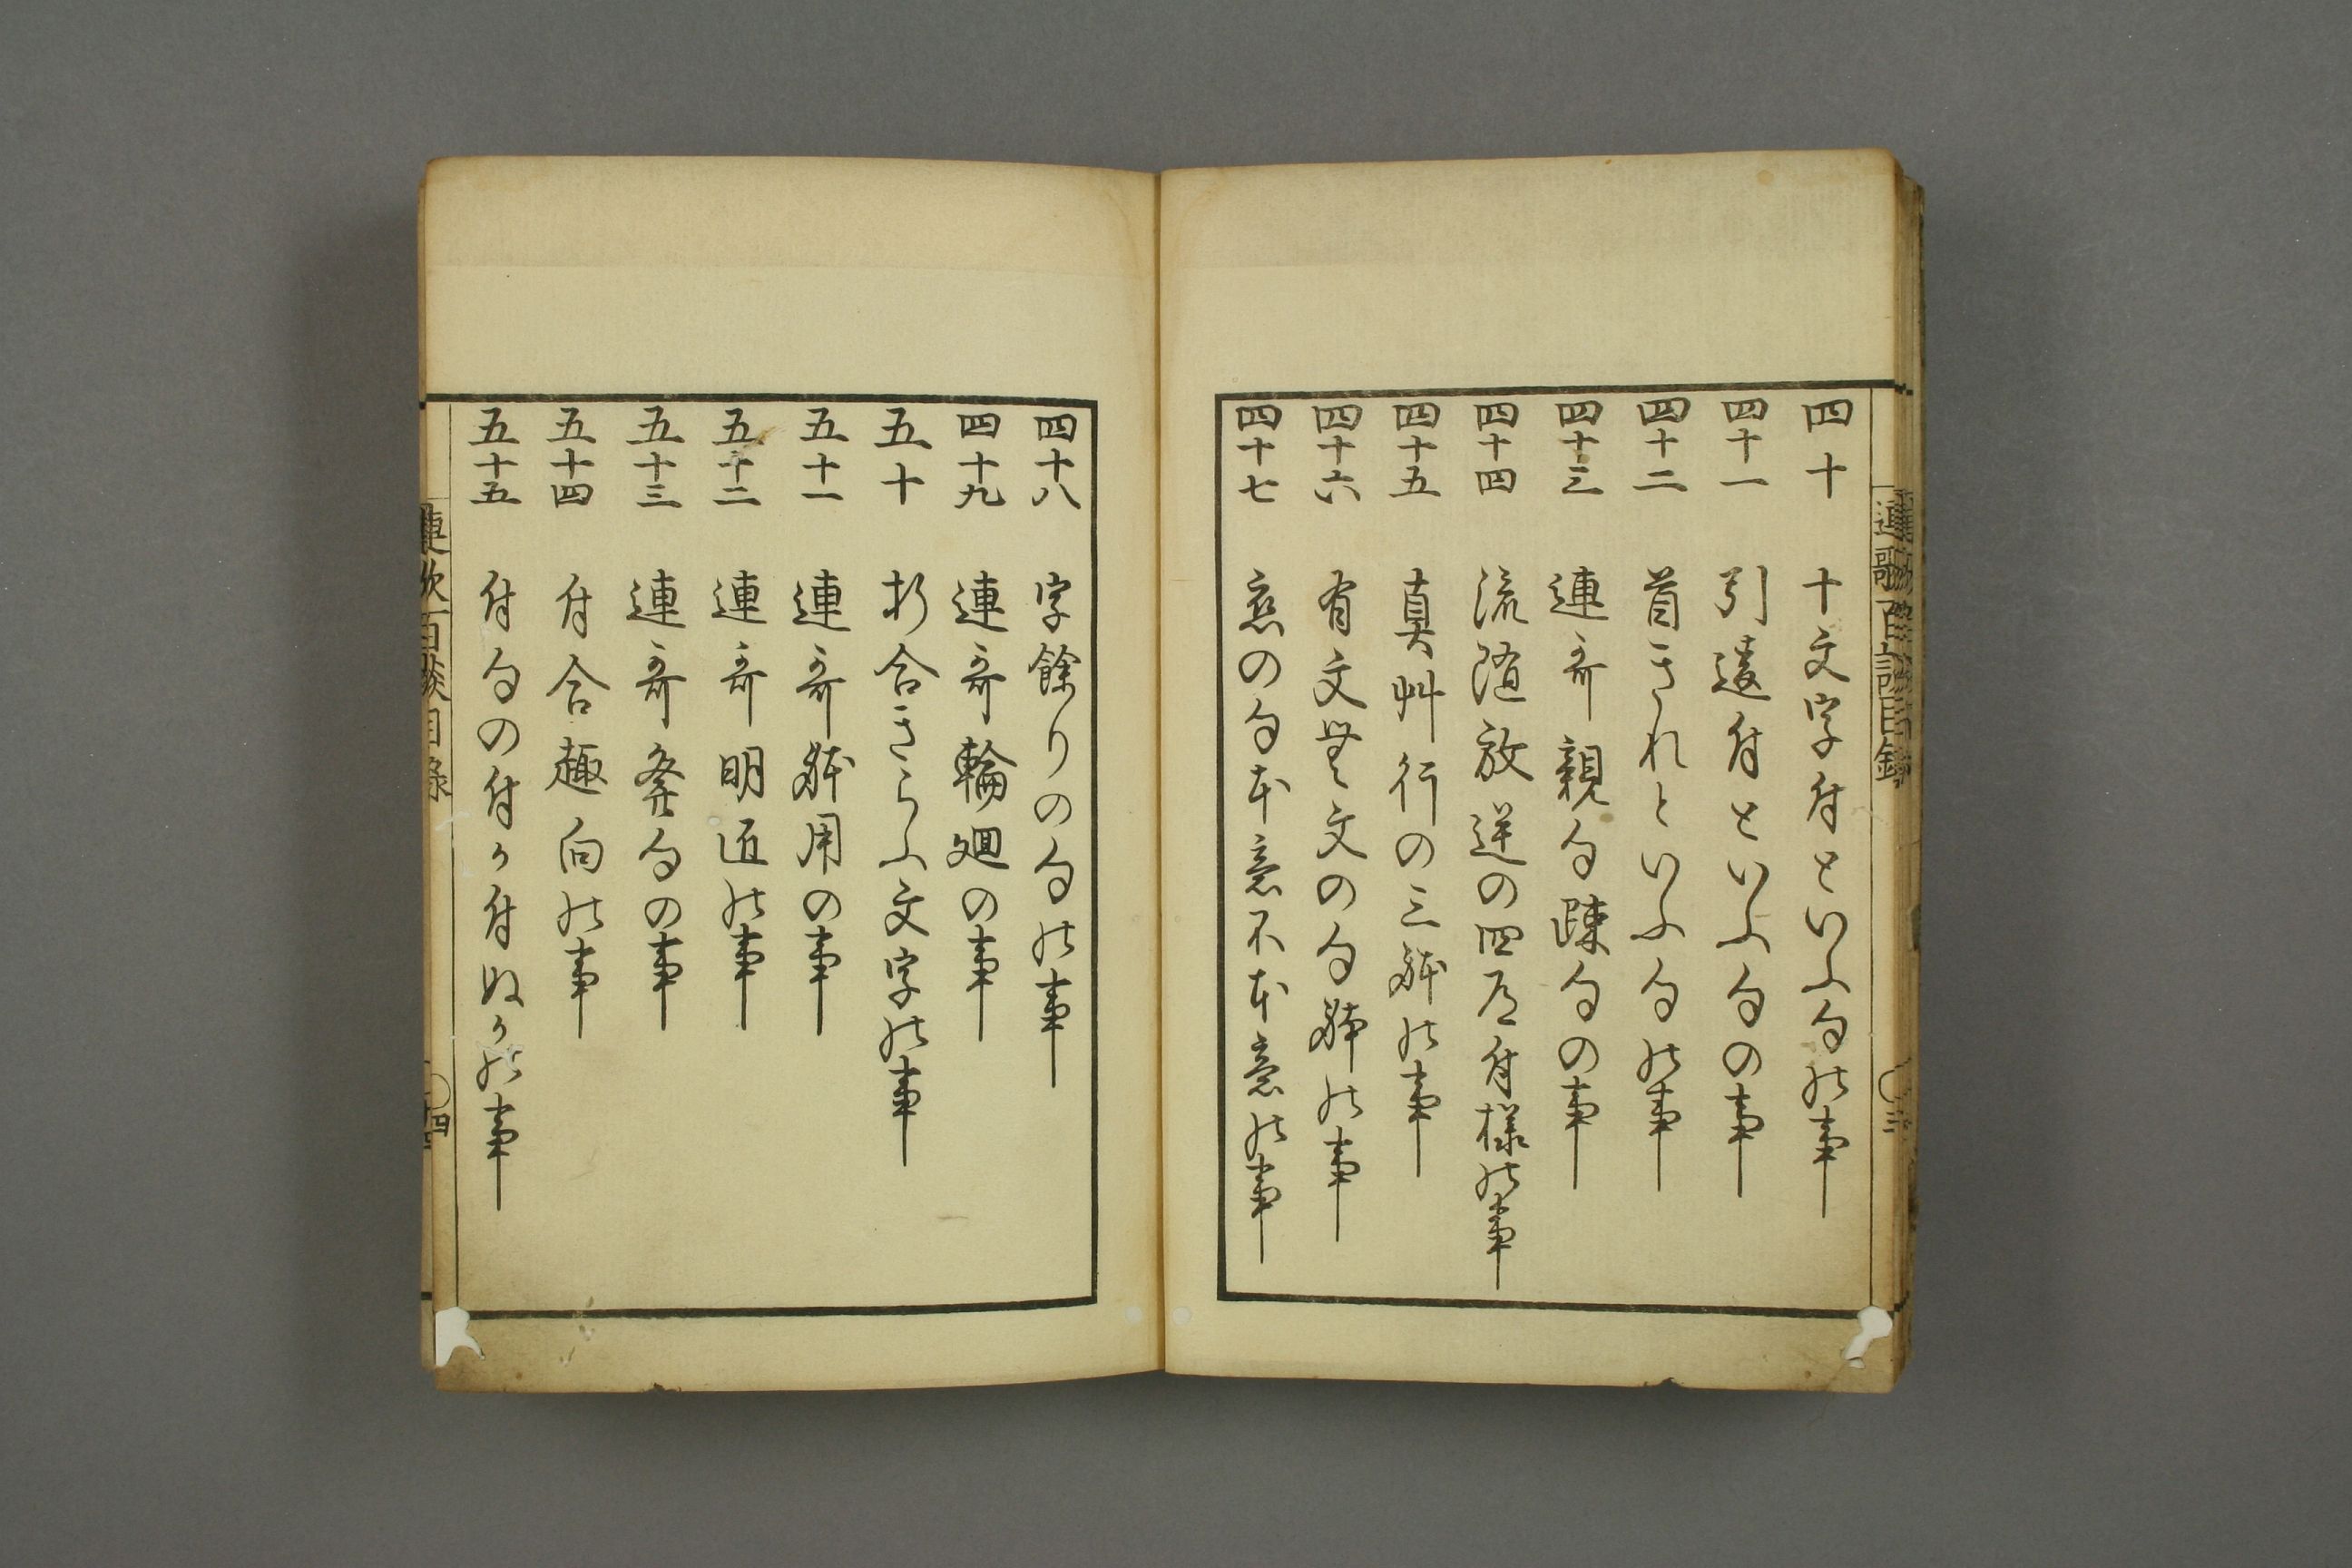 連歌百談目録 〇三
四十 十文字付といふ句の事
四十一 引違付といふ句の事
四十二 首きれといふ句の事
四十三 連哥親句疎句の事
四十四 添随放逆の四道付様の事
四十五 真艸行の三躰の事
四十六 有文無文の句躰の事
四十七 恋の句本意不本意の事
四十八 字餘りの句の事
四十九 連哥輪廻の事
五十 折合きらふ文字の事
五十一 連哥躰用の事
五十二 連哥明匠の事
五十三 連哥句の事
五十四 付合趣向の事
五十五 付句の付か付ぬかの事
連歌百談目録 〇四